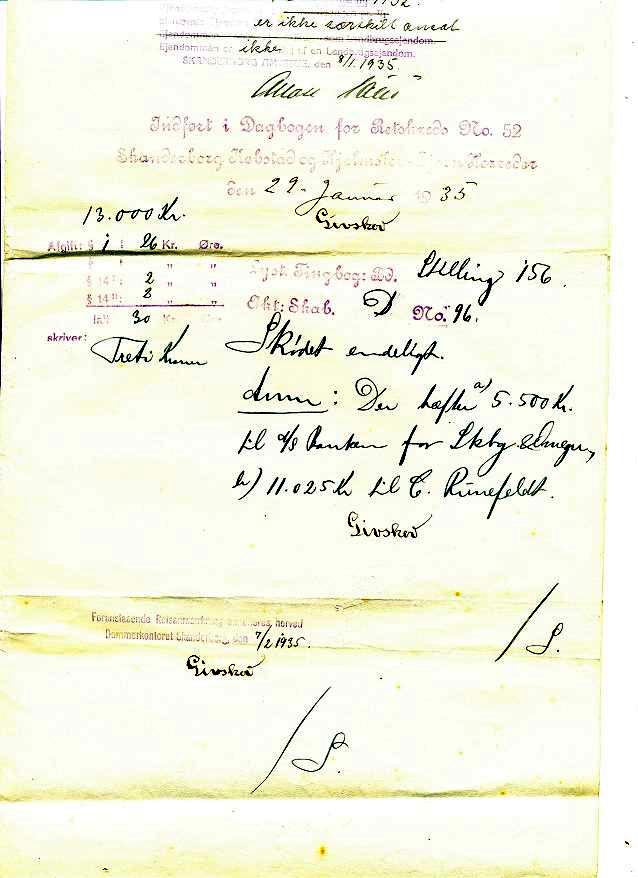 1932.
er ikke særskilt ansat
som Landbrugsejendom.
Ejendommen er ikke en Landbrugsejendom.
SKANDERBORG AMTSTUE, den 8/1. 1935.
Indført i Dagbogen for Retskreds No. 52
Skanderborg Købstad og Hjelmslev-Gjern Herreder
den 29. Januar 1935
Givskov
13.000 Kr.
Afgift: § 1 : 26 Kr. Øre.
§ " "
§ 14 : 2 " "
§ 14 : 2 " "
Ialt 30 Kr. Øre
skriver:
Treti Kroner
Lyst. Tingbog: Bd. Stilling 156.
Akt: Skab. D No. 96.
Skødet endeligt.
Anm: Der hæfter a) 5.500 Kr.
til A/S Banken for Skbg & Omegn,
b) 11.025 Kr til C. Runefeldt.
Givskov
Foranstaaende herved
Dommerkontoret Skanderborg, den 7/2 1935.
Givskov
/S.
/S.